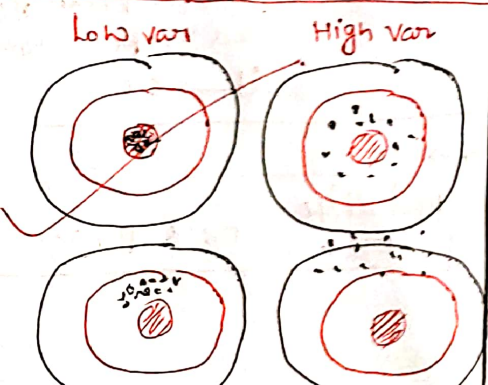 Low var
High var